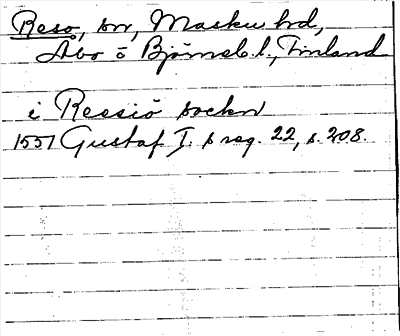 Resö, sn, Masku hd,
Åbo o Björneb. l., Finland
i Ressiö sockn
1557 Gustaf I. s reg. 22, s. 208.